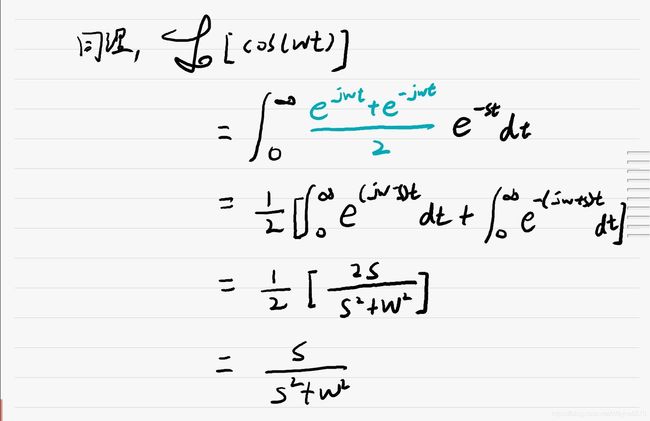 同理, ℒ[cos(wt)]
= ∫₀^∞ (e^{jwt}+e^{-jwt})/2 e^{-st} dt
= 1/2 [∫₀^∞ e^{(jw-s)t} dt + ∫₀^∞ e^{-(jw+s)t} dt]
= 1/2 [2s/(s²+w²)]
= s/(s²+w²)